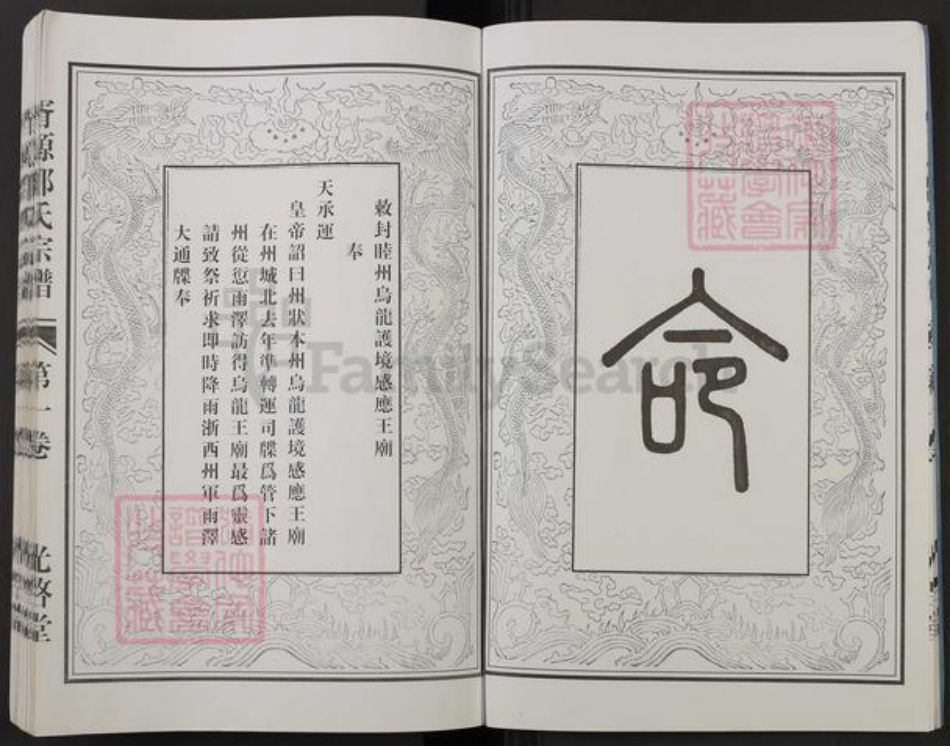 命
敕封睦州烏龍護境感應王廟
奉
天承運
皇帝詔曰州狀本州烏龍護境感應王廟
在州城北去年準轉運司牒爲管下諸
州從愆雨澤訪得烏龍王廟最爲靈感
請致祭祈求即時降雨浙西州軍雨澤
大通牒奉
源邵氏宗譜
第一卷
光啓堂
FamilySearch